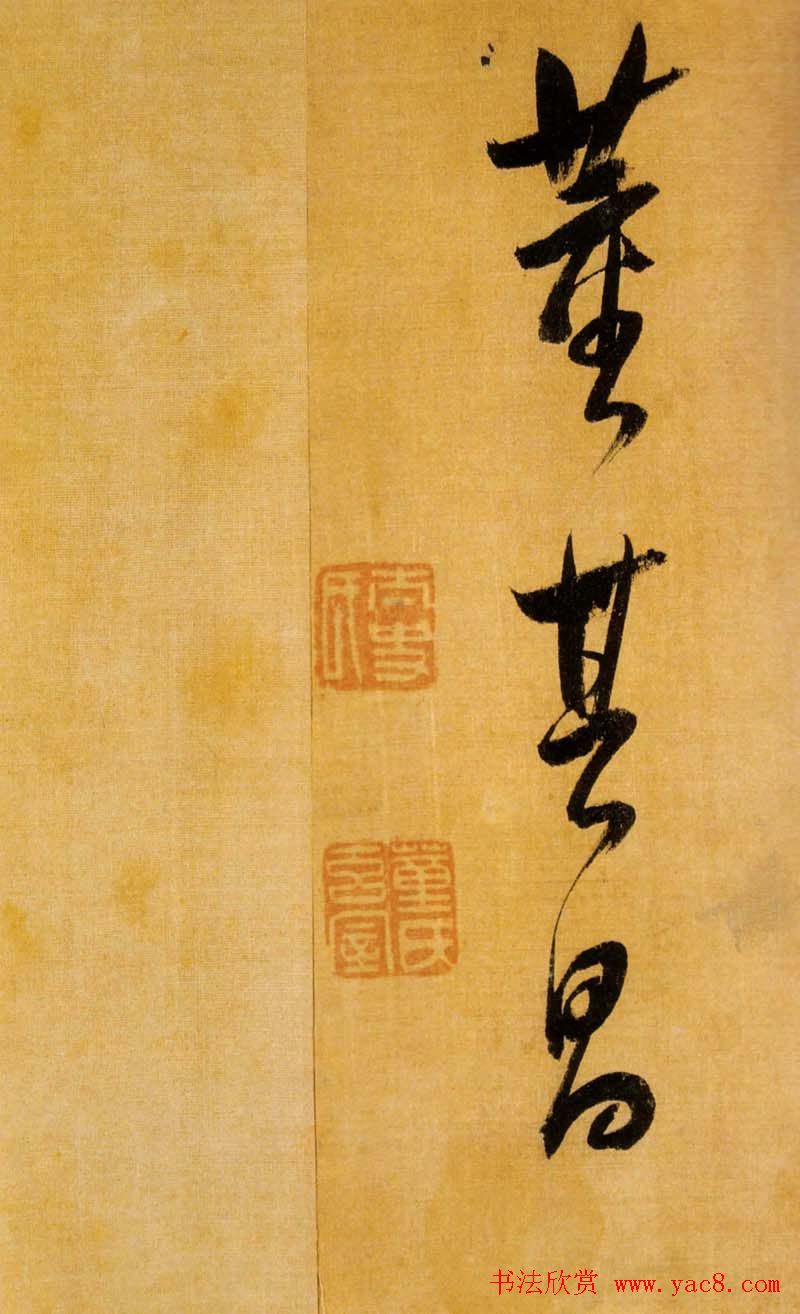 董其昌
董氏玄宰
书法欣赏 www.yac8.com